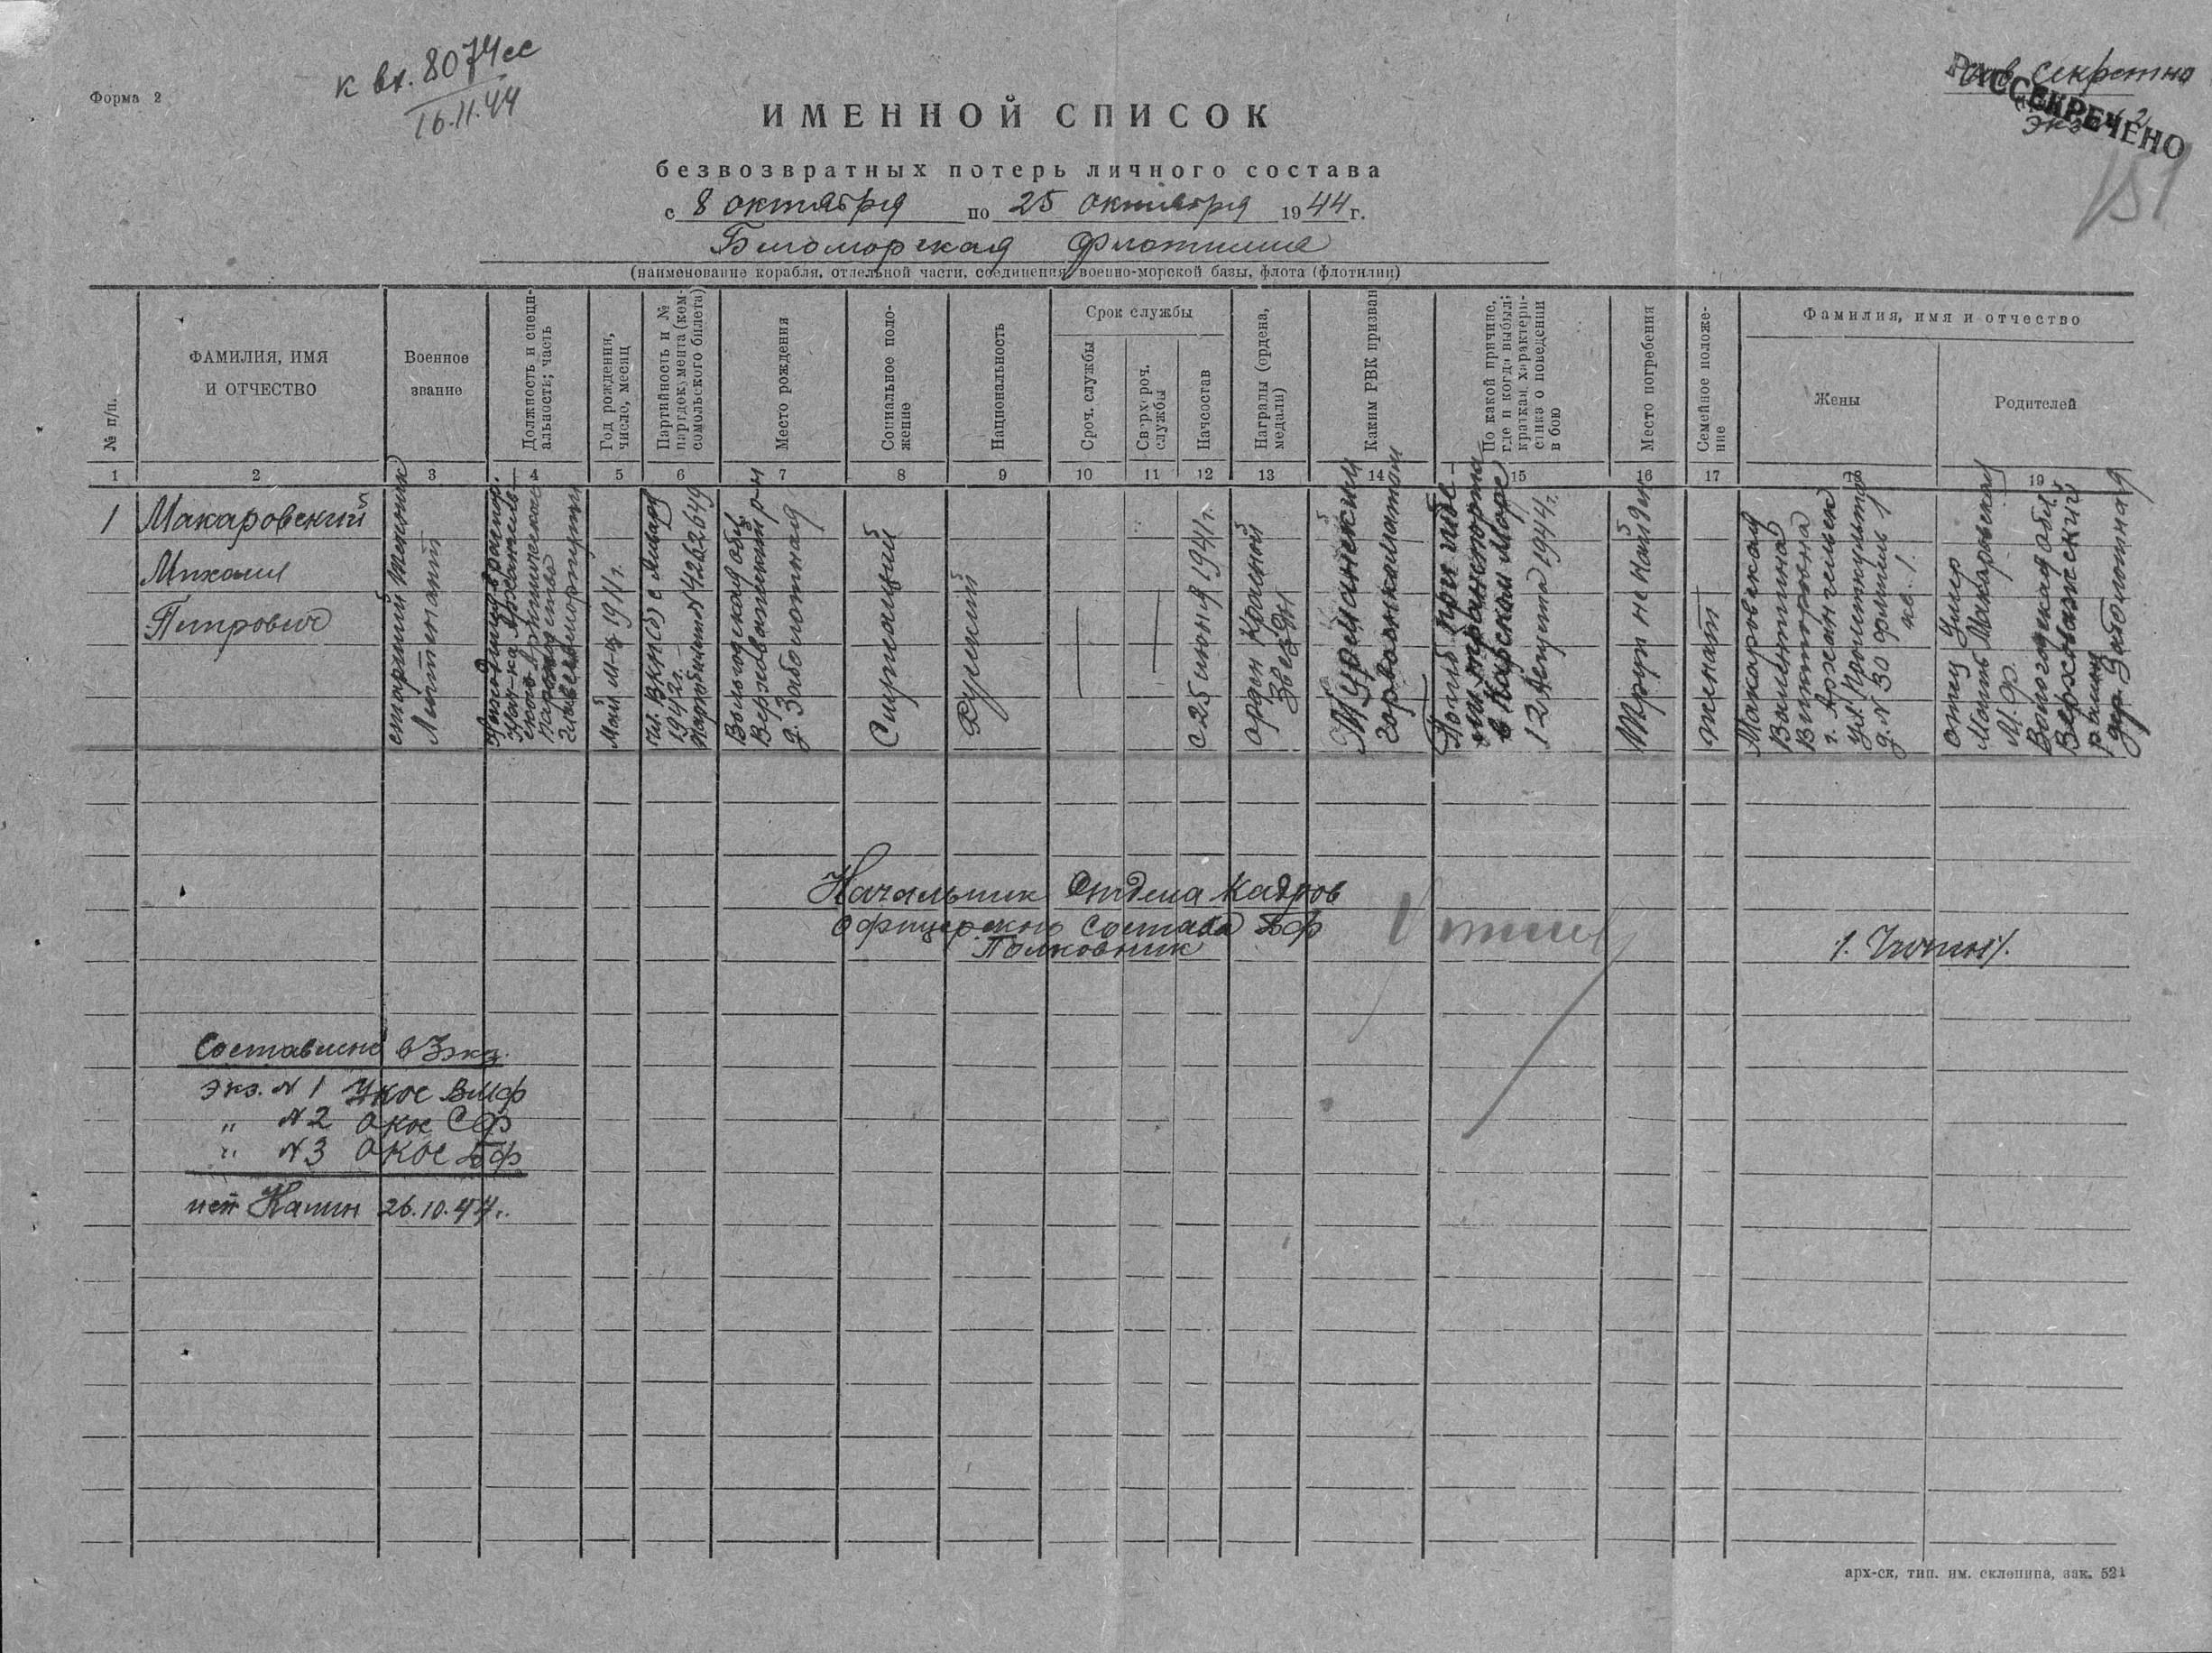 Форма 2
к вх. 8074сс
16.11.44
сов. секретно
РАССЕКРЕЧЕНО
151
ИМЕННОЙ СПИСОК
безвозвратных потерь личного состава
с 8 октября по 25 октября 1944 г.
Беломорская Флотилия
(наименование корабля, отдельной части, соединения, военно-морской базы, флота (флотилии)
№ п/п.
ФАМИЛИЯ, ИМЯ
И ОТЧЕСТВО
Военное
звание
Должность и специ-
альность; часть
Год рождения,
число, месяц
Партийность и №
партдокумента (ком-
сомольского билета)
Место рождения
Социальное поло-
жение
Национальность
Срок службы
Сроч. службы
Сверхсроч.
службы
Начсостав
Награды (ордена,
медали)
Каким РВК призван
По какой причине,
где и когда выбыл;
краткая характери-
стика о поведении
в бою
Место погребения
Семейное положе-
ние
Фамилия, имя и отчество
Жены
Родителей
1 2 3 4 5 6 7 8 9 10 11 12 13 14 15 16 17 18 19
1 Макаровский
Михаил
Петрович
старший техник
Лейтенант
Арктического
пароходства
Главсевморпути
Май м-ц 1911 г.
чл. ВКП(б) с Января
1942 г.
Партбилет № 4262649
Вологодская обл.
Верховажский р-н
д. Заболотная
Служащий
Русский
с 25 июня 1941 г.
орден Красной
Звезды
Мурманским
горвоенкоматом
Погиб при гибе-
ли транспорта
в Карском Море
12 Августа 1944 г.
Труп не найден
женат
Макаровская
Валентина
Викторовна
г. Архангельск
ул. Пролеткульта
д. № 30 флигель 1
кв. 1.
отец умер
Мать Макаровская
М. Ф.
Вологодская обл.
Верховажский
район
дер. Заболотная
Начальник Отдела Кадров
Офицерского Состава БФ
Полковник
Составлено в 3 экз.
экз. № 1 УКОС ВМФ
" № 2 ОКОС СФ
" № 3 ОКОС БФ
исп Капин 26.10.44 г.
арх-ск, тип. им. склепина, зак. 521